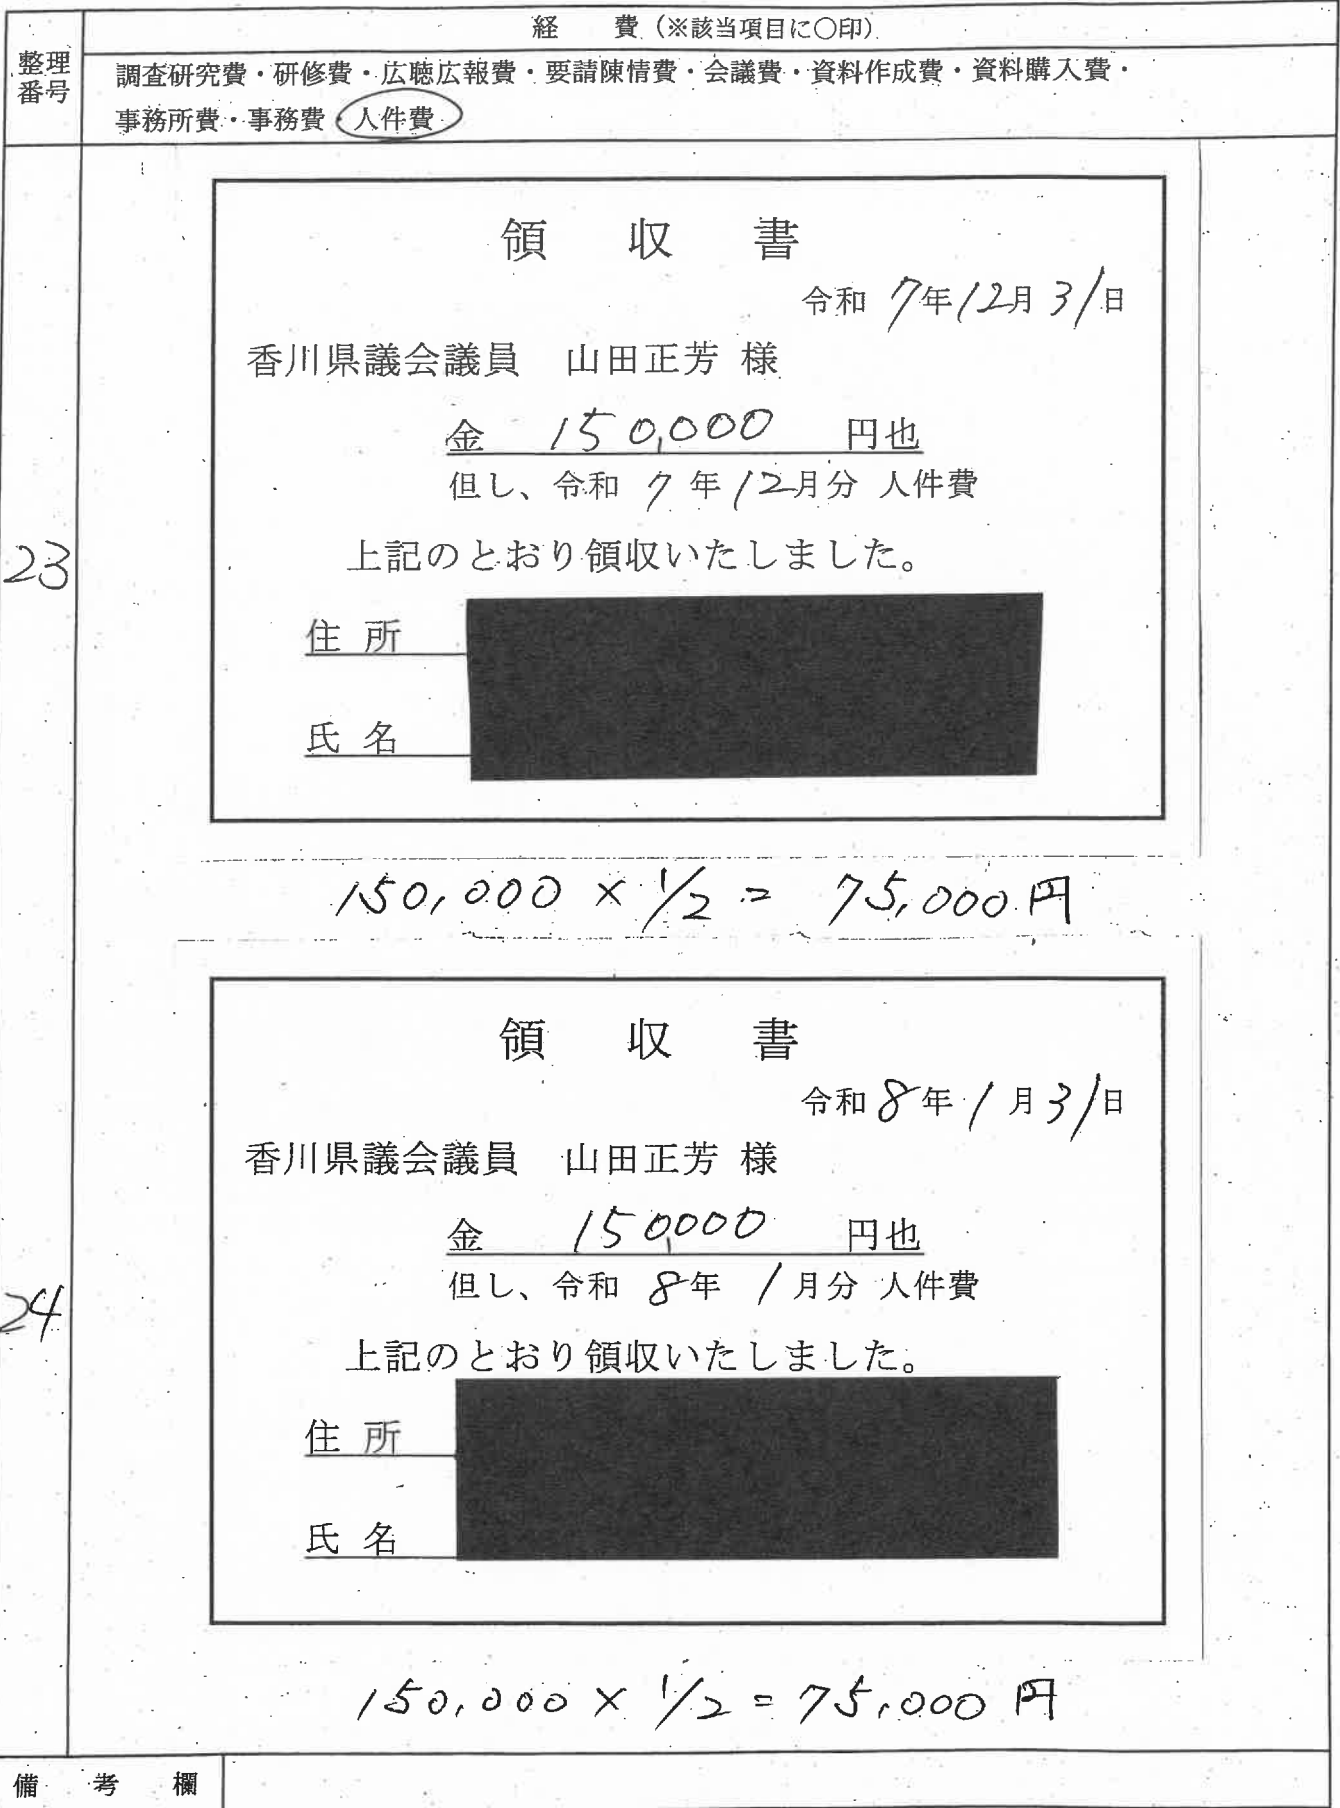 経　費（※該当項目に〇印）
整理番号
調査研究費・研修費・広聴広報費・要請陳情費・会議費・資料作成費・資料購入費・
事務所費・事務費・人件費
23
領　収　書
令和 7年12月31日
香川県議会議員　山田正芳 様
金　150,000　円也
但し、令和 7 年 12月分 人件費
上記のとおり領収いたしました。
住 所
氏 名
150,000 × 1/2 = 75,000円
24
領　収　書
令和 8年 1月31日
香川県議会議員　山田正芳 様
金　150,000　円也
但し、令和 8年 1月分 人件費
上記のとおり領収いたしました。
住 所
氏 名
150,000 × 1/2 = 75,000円
備　考　欄